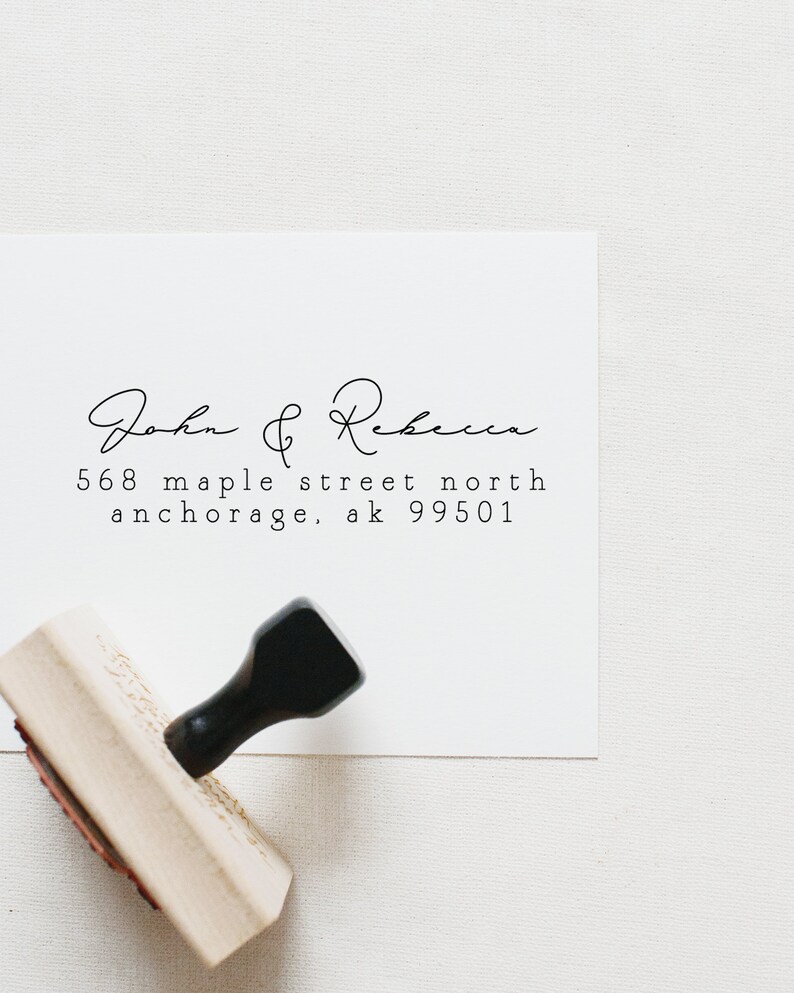 John & Rebecca
568 maple street north
anchorage, ak 99501